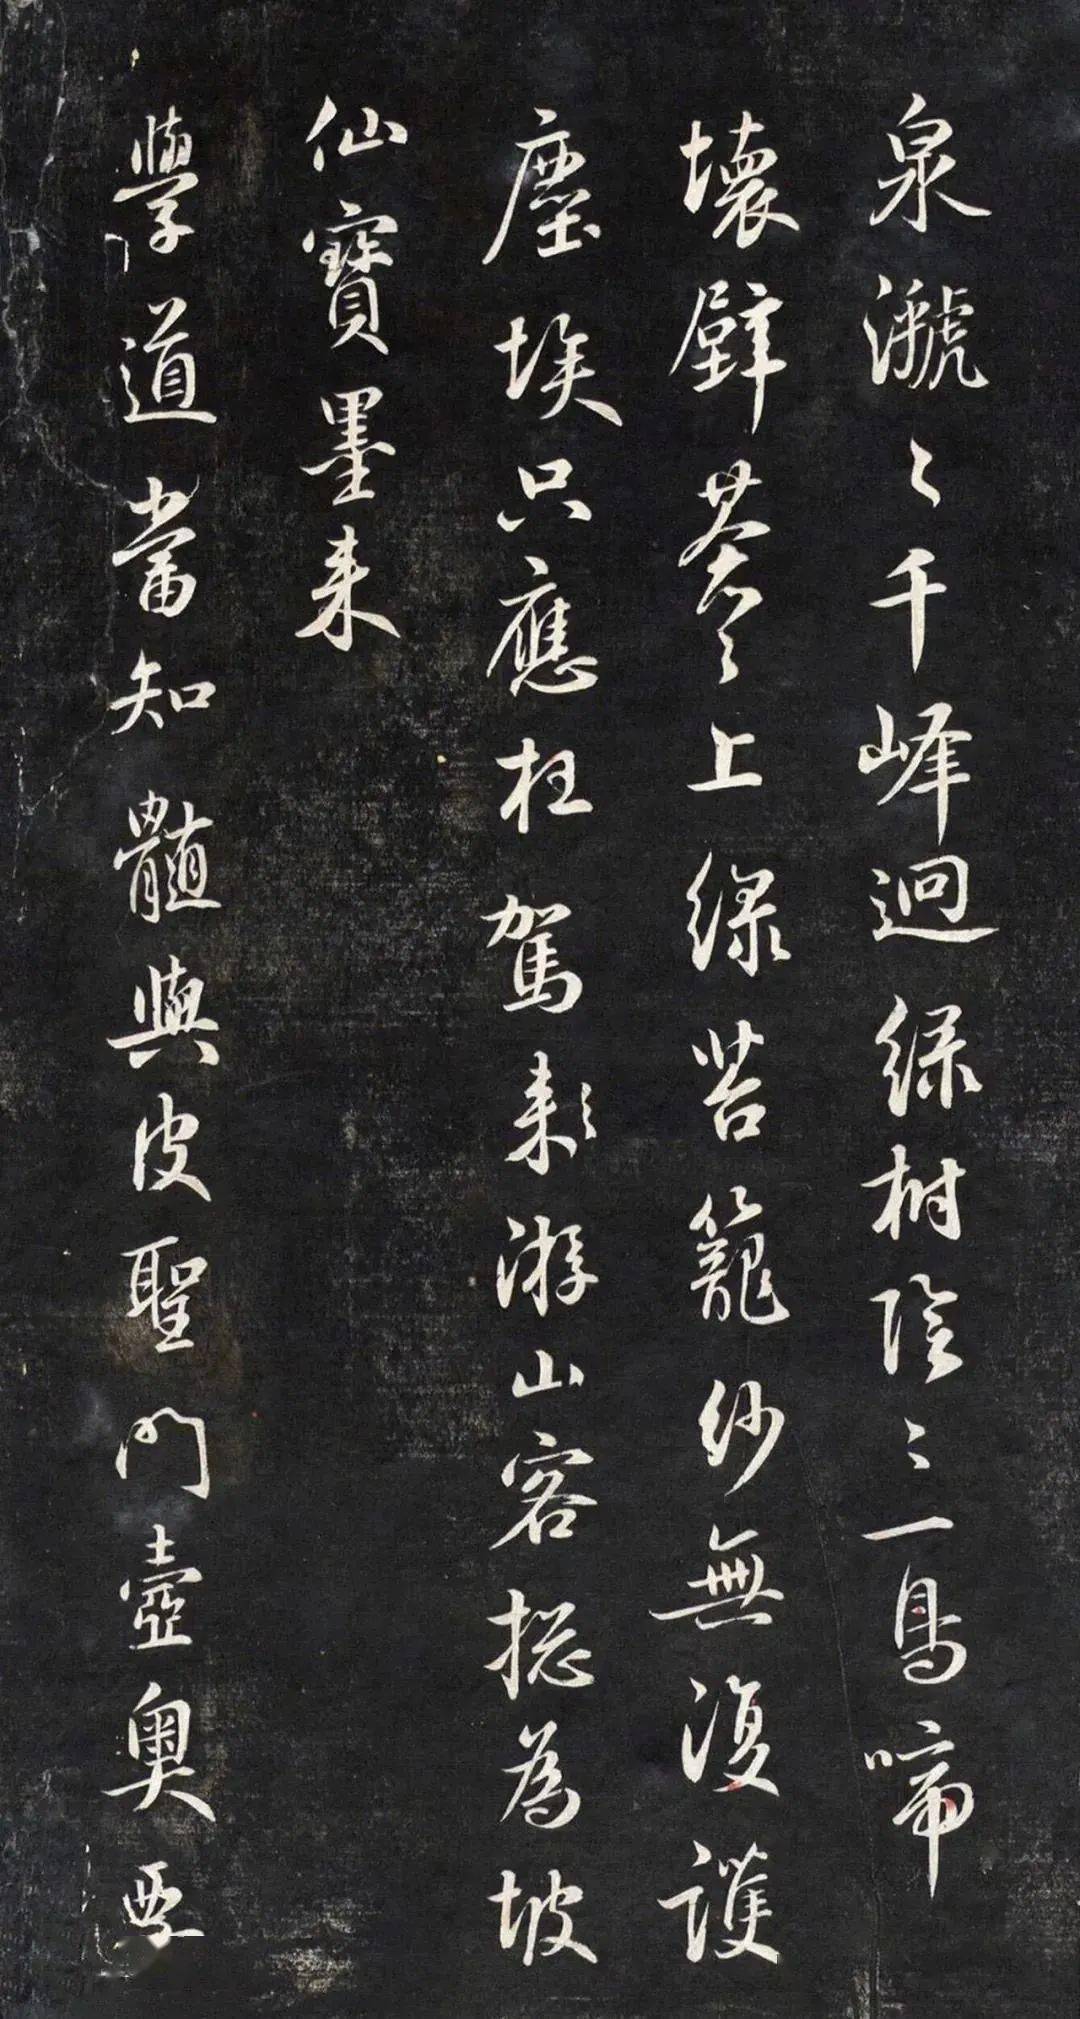 泉㶁〻千峰迥緑樹陰〻一鳥啼
壞壁蒼〻上緑苔籠紗無復護
塵埃只應枉駕来游山客揔為坡
仙寶墨来
學道當知髓與皮聖門壼奥要